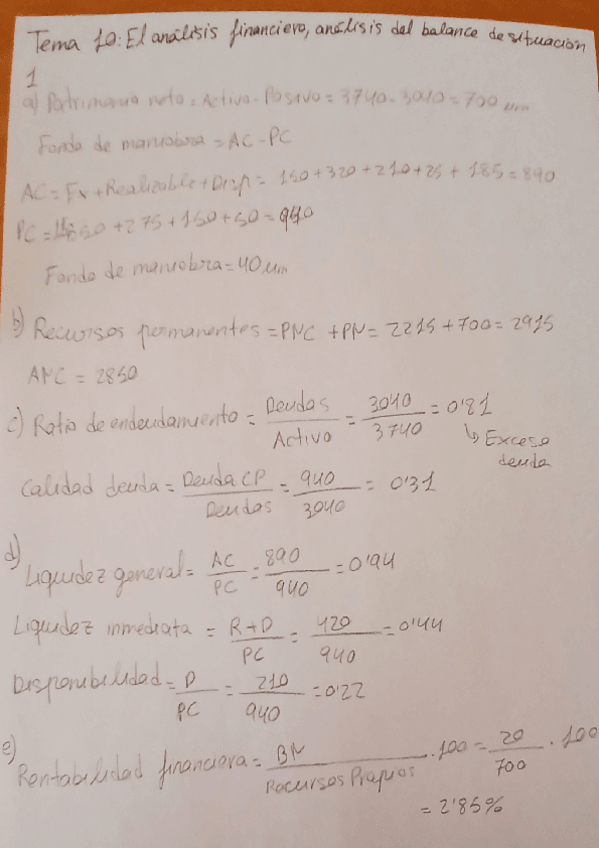 Tema 10: El análisis financiero, análisis del balance de situación
1
a) Patrimonio neto = Activo - Pasivo = 3740 - 3040 = 700 um
Fondo de maniobra = AC - PC
AC = Ex + Realizable + Disp = 150 + 320 + 210 + 25 + 185 = 890
PC = 50 + 275 + 150 + 50 = 940
Fondo de maniobra = 40 um
b) Recursos permanentes = PNC + PN = 2215 + 700 = 2915
ANC = 2850
c) Ratio de endeudamiento = Deudas / Activo = 3040 / 3740 = 0'81
↳ Exceso deuda
Calidad deuda = Deuda CP / Deudas = 940 / 3040 = 0'31
d)
Liquidez general = AC / PC = 890 / 940 = 0'94
Liquidez inmediata = R+D / PC = 420 / 940 = 0'44
Disponibilidad = D / PC = 210 / 940 = 0'22
e)
Rentabilidad financiera = BN / Recursos Propios . 100 = 20 / 700 . 100
= 2'85%